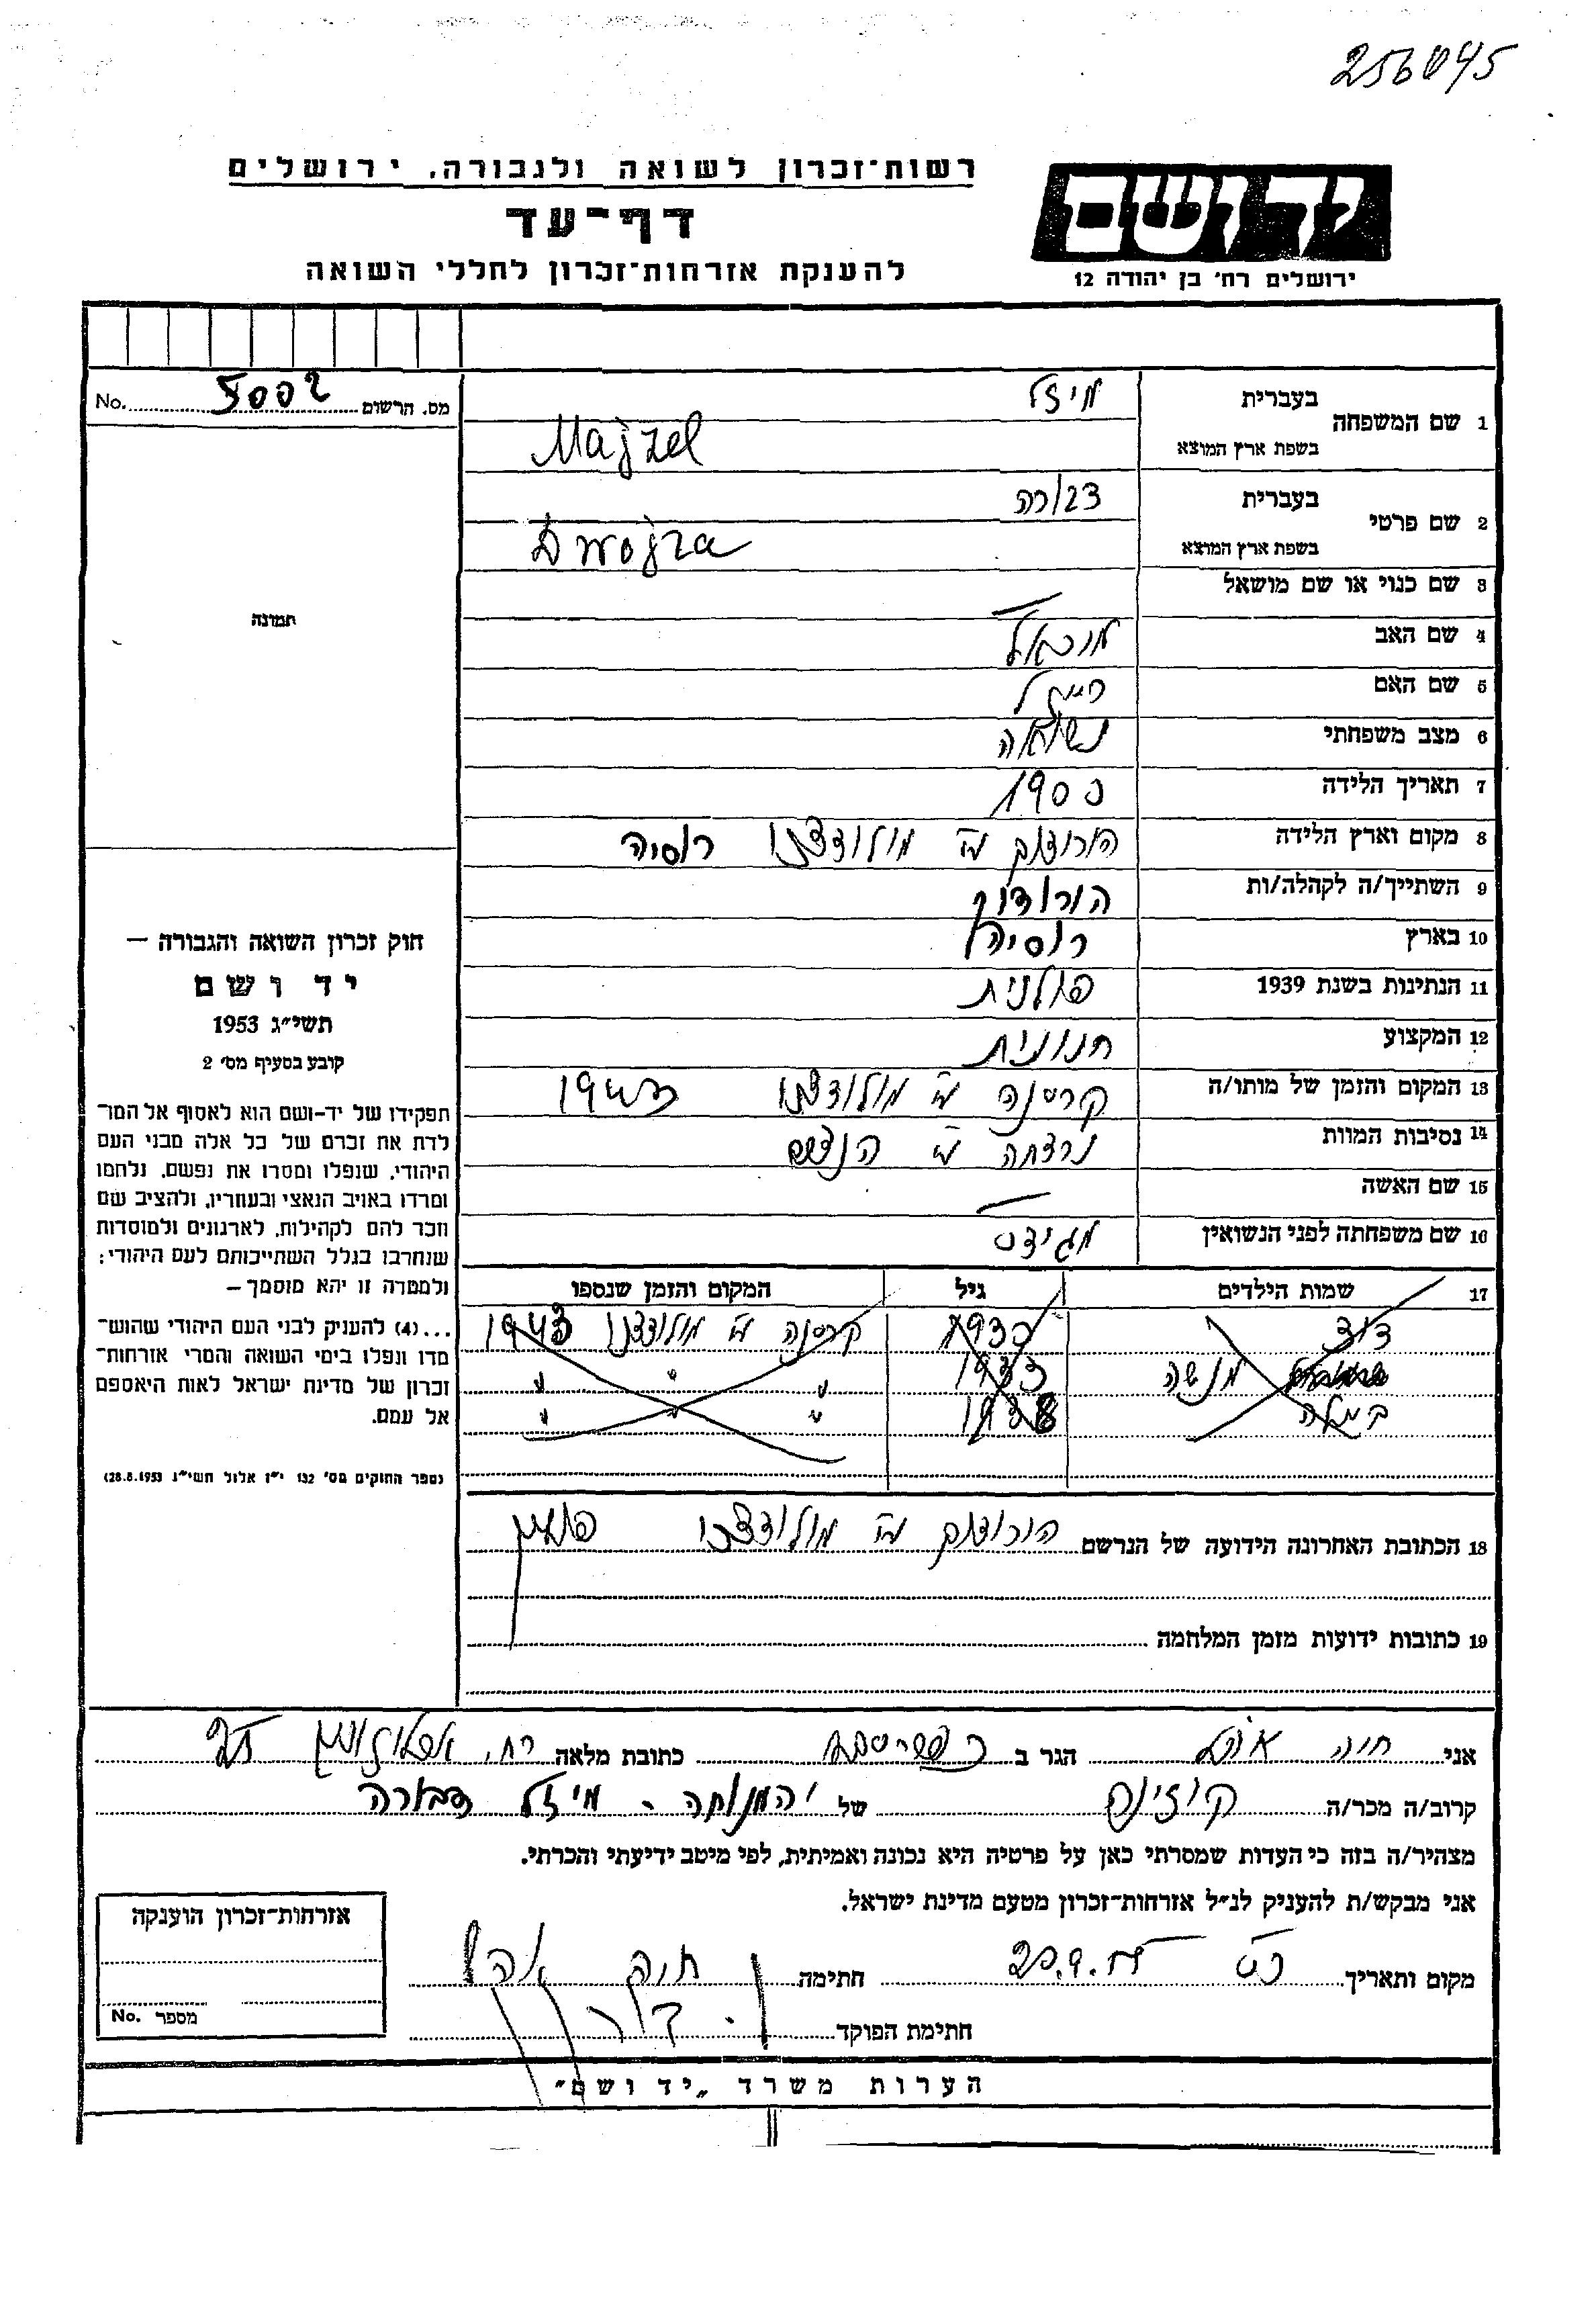 256045
רשות־זכרון לשואה ולגבורה, ירושלים
דף־עד
להענקת אזרחות־זכרון לחללי השואה
יד ושם
ירושלים רח' בן יהודה 12
מס. הרשום 5002 No.
1 שם המשפחה בעברית מיזל
בשפת ארץ המוצא Majzel
2 שם פרטי בעברית דבורה
בשפת ארץ המוצא Dwojra
3 שם כנוי או שם מושאל —
4 שם האב מיכאל
5 שם האם
6 מצב משפחתי נשואה
7 תאריך הלידה 1900
8 מקום וארץ הלידה הורודוק ע"י מולודצנו רוסיה
9 השתייך/ה לקהלה/ות הורודוק
10 בארץ רוסיה
11 הנתינות בשנת 1939 פולנית
12 המקצוע חנונית
13 המקום והזמן של מותו/ה קרסנה ע"י מולודצנו 1943
14 נסיבות המוות נרצחה ע"י הנאצים
15 שם האשה —
16 שם משפחתה לפני הנשואין
17 שמות הילדים גיל המקום והזמן שנספו
דוד 1930 קרסנה ע"י מולודצנו 1943
מנשה 1933 " " "
1938 " " "
18 הכתובת האחרונה הידועה של הנרשם הורודוק ע"י מולודצנו פולין
19 כתובות ידועות מזמן המלחמה
תמונה
חוק זכרון השואה והגבורה —
יד ושם
תשי"ג 1953
קובע בסעיף מס' 2
תפקידו של יד-ושם הוא לאסוף אל המו־
לדת את זכרם של כל אלה מבני העם
היהודי, שנפלו ומסרו את נפשם, נלחמו
ומרדו באויב הנאצי ובעוזריו, ולהציב שם
וזכר להם לקהילות, לארגונים ולמוסדות
שנחרבו בגלל השתייכותם לעם היהודי;
ולמטרה זו יהא מוסמך —
...(4) להעניק לבני העם היהודי שהוש־
מדו ונפלו בימי השואה והמרי אזרחות־
זכרון של מדינת ישראל לאות היאספם
אל עמם.
(ספר החוקים מס' 132 י"ז אלול תשי"ג 28.8.1953)
אני חיה הגר ב כתובת מלאה רח. 25
קרוב/ה מכר/ה קוזינה של המנוחה - מיזל דבורה
מצהיר/ה בזה כי העדות שמסרתי כאן על פרטיה היא נכונה ואמיתית, לפי מיטב ידיעתי והכרתי.
אני מבקש/ת להעניק לנ"ל אזרחות־זכרון מטעם מדינת ישראל.
מקום ותאריך 20.9.55 חתימה חיה
חתימת הפוקד
אזרחות־זכרון הוענקה
מספר No.
הערות משרד „יד ושם"